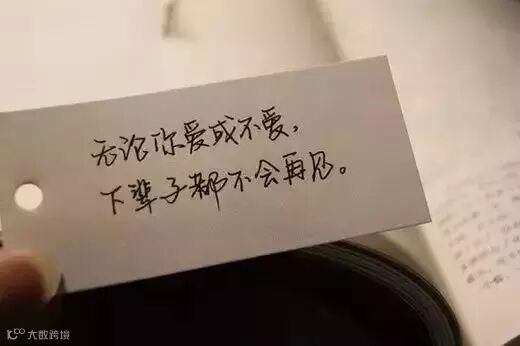 无论你爱或不爱，
下辈子都不会再见。
大数跨境